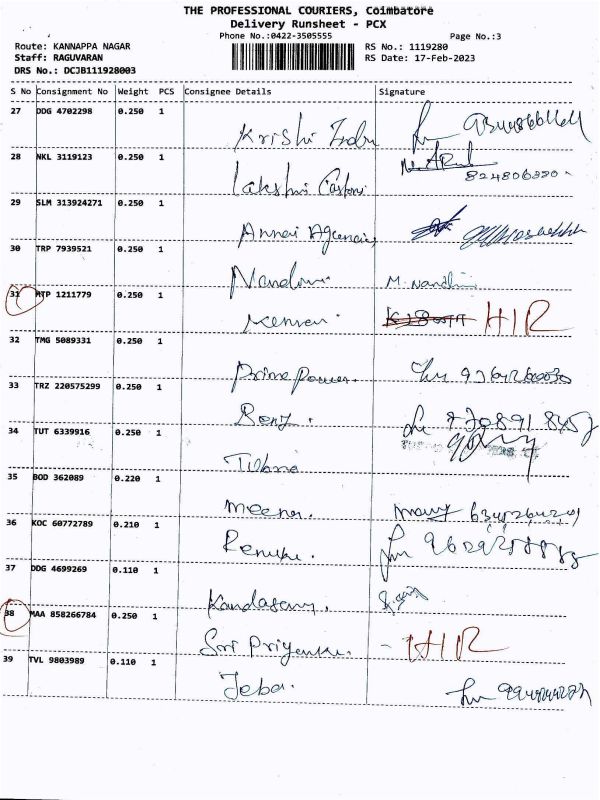 THE PROFESSIONAL COURIERS, Coimbatore
Delivery Runsheet - PCX
Phone No.:0422-3505555
Page No.:3
Route: KANNAPPA NAGAR
RS No.: 1119280
Staff: RAGUVARAN
RS Date: 17-Feb-2023
DRS No.: DCJB111928003
S No Consignment No Weight PCS Consignee Details Signature
27 DDG 4702298 0.250 1
Krishi
28 NKL 3119123 0.250 1
Lakshmi
824806220
29 SLM 313924271 0.250 1
Annai Agencies
30 TRP 7939521 0.250 1
Nandini M. Nandhini
31 RTP 1211779 0.250 1
Kannan HIR
32 TMG 5089331 0.250 1
Prime Power
33 TRZ 220575299 0.250 1
Benz
34 TUT 6339916 0.250 1
35 BOD 362089 0.220 1
Meena
36 KOC 60772789 0.210 1
Renuka
37 DDG 4699269 0.110 1
Kandasamy
38 MAA 858266784 0.250 1
Sri Priyanka - HIR
39 TVL 9803989 0.110 1
Jeba